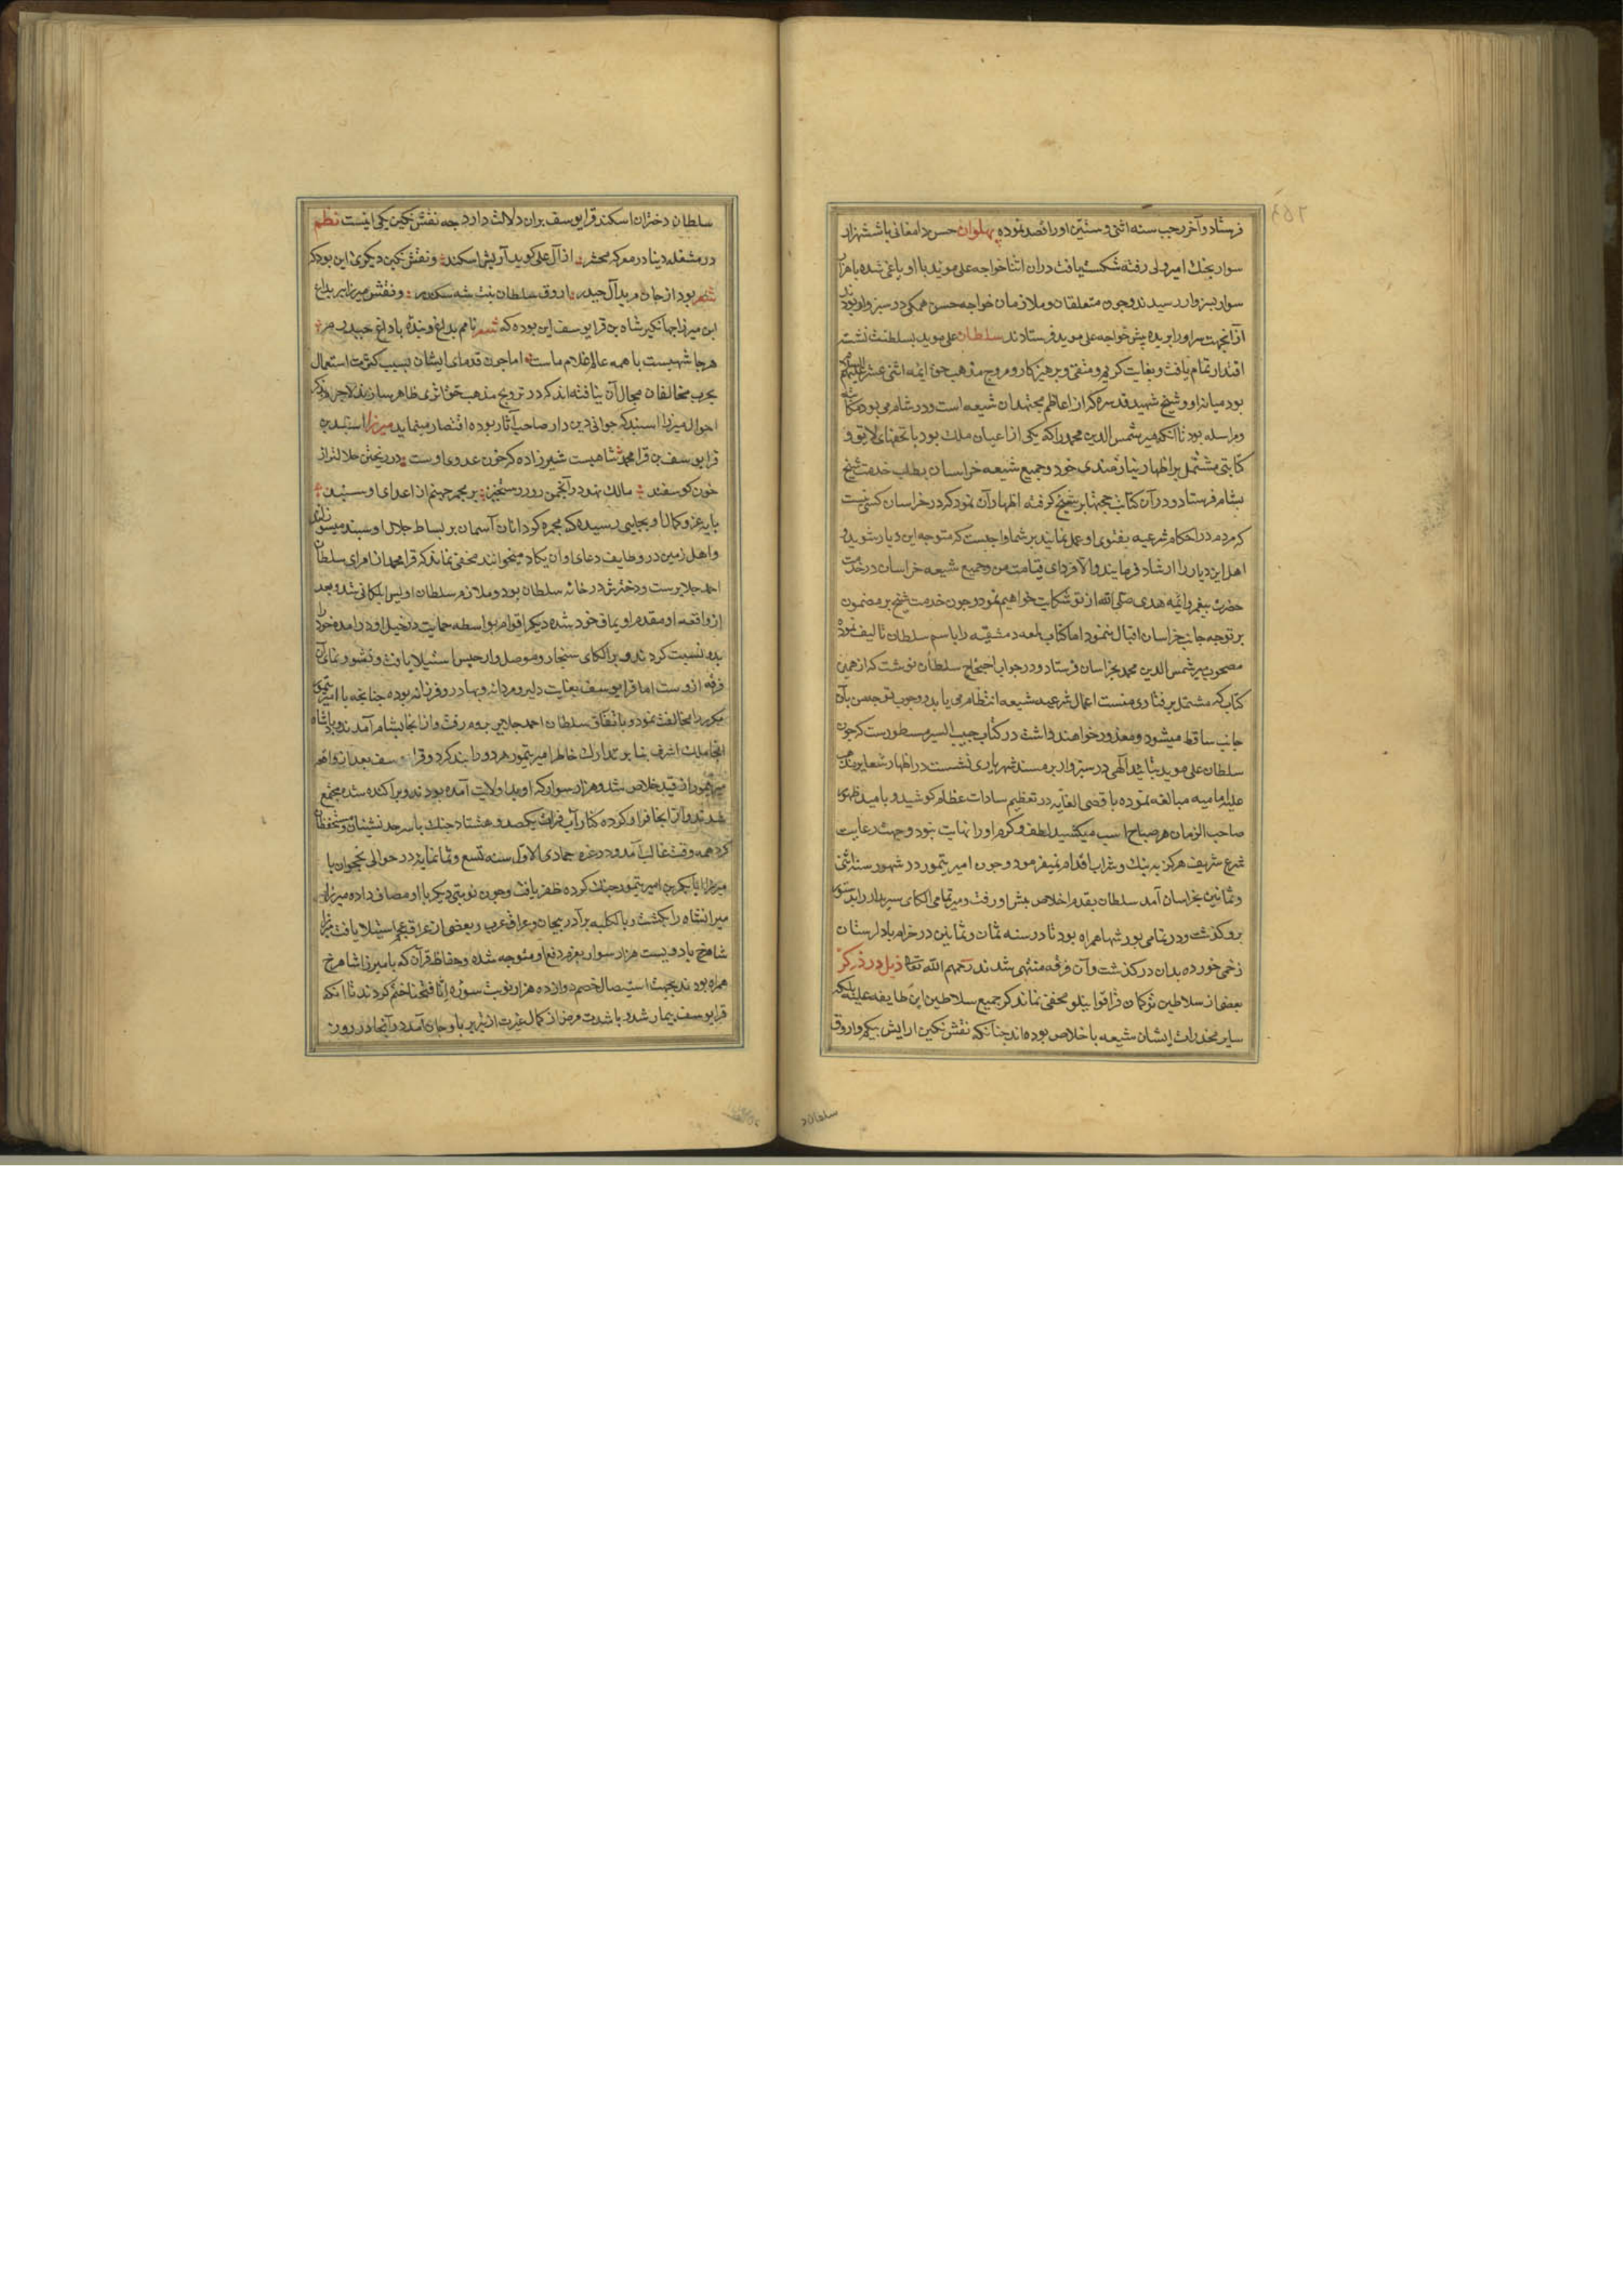 فرستاد و آخر رجب سنه اثنی و ستین او را قصد نموده پهلوان حسن دامغانی با شش هزار
سوار بجنك امیر ولی رفته شكست یافت دران اثنا خواجه علی موید با او یاغی شده با هزار
سوار بسبزوار رسیدند و چون متعلقان و ملازمان خواجه حسن همكی در سبزوار بودند
از آنجهت سر او را بریده پیش خواجه علی موید فرستادند سلطان علی موید بسلطنت نشسته
اقتدار تمام یافت و بغایت كریم و متقی و پرهیزكار و مروج مذهب حق ائمه اثنی عشر علیهم
بود میان او و شیخ شهید قدس سره كه از اعاظم مجتهدان شیعه است و در شام می بود مكاتبه
و مراسله بود تا آنكه میر شمس الدین محمد را كه یكی از اعیان ملك بود با تحفهای لایق و
كتابتی مشتمل بر اظهار نیازمندی خود و جمیع شیعه خراسان بطلب خدمت شیخ
بشام فرستاد و در آن كتابت حجتها بر شیخ كرفته اظهار آن نمود كه در خراسان كسی نیست
كه مردم در احكام شرعیه بفتوی او عمل نمایند بر شما واجبست كه متوجه این دیار شوید و
اهل این دیار را ارشاد فرمایند والا فردای قیامت من و جمیع شیعه خراسان در خدمت
حضرت پیغمبر و ائمه هدی صلی الله از تو شكایت خواهیم نمود و چون خدمت شیخ بر مضمون
بر توجه جانب خراسان اقبال ننمود اما كتاب لمعه دمشقیه را باسم سلطان تالیف نمود
مصحوب میر شمس الدین محمد بخراسان فرستاد و در جواب احتجاج سلطان نوشت كه از همین
كتاب كه مشتمل بر فتاوی منست اعمال شرعیه شیعه انتظام می یابد و وجوب توجه من بآن
جانب ساقط میشود و معذور خواهند داشت در كتاب حبیب السیر مسطورست كه چون
سلطان علی موید بتائید آلهی در سبزوار بر مسند شهریاری نشست در اظهار شعایر مذهب
علیه امامیه مبالغه نموده باقصی الغایه در تعظیم سادات عظام كوشید و بامید ظهور
صاحب الزمان هر صباح اسب میكشید لطف و كرم او را نهایت نبود و جهت رعایت
شرع شریف هركز به بنك و شراب اقدام نمیفرمود و چون امیر تیمور در شهور سنه اثنی
و ثمانین بخراسان آمد سلطان بقدم اخلاص پیش او رفت و میر تمامی الكای سربدار را بدستور
برو كذشت و در تمامی یورشها همراه بود تا در سنه ثمان و ثمانین در خرم اباد لرستان
زخمی خورده بدان در كذشت و آن فرقه منتهی شدند رحمهم الله تعالی ذیل در ذكر
بعضی از سلاطین تركمان قراقوینلو مخفی نماند كه جمیع سلاطین این طایفه علیه بلكه
سایر مخدرات ایشان شیعه با خلاص بوده اند چنانكه نقش نكین ارایش بیكم و اروق
سلطان د
سلطان دختران اسكندر قرایوسف بران دلالت دارد چه نقش نكین یكی اینست نظم
در مشغله دنیا در معركه محشر از آل علی كوید آرایش اسكندر و نقش نكین دیكری این بود كه
شعر بود از جان مرید آل حیدر اروق سلطان بنت شه سكندر و نقش میرزا پیر بداغ
ابن میرزا جهانكیر شاه بن قرایوسف این بوده كه شعر نامم بداغ و بنده با داغ حیدرم
هر جا شهیست با همه عالم غلام ماست اما چون قدمای ایشان بسبب كثرت استعمال
بحرب مخالفان مجال آن نیافته اند كه در ترویج مذهب حق اثری ظاهر سازند لاجرم
احوال میرزا اسپند كه جوانی دین دار صاحب آثار بوده اقتصار مینماید میرزا اسپند بن
قرایوسف بن قرا محمد شاهیست شیرزاده كه خون عدوی اوست در ریختن حلالتر از
خون كوسفند مالك نهد در انجمن روز رستخیز بر مجمر جهنم از اعدای او سپند
پایه عز و كمال او بجایی رسیده كه مجمره كردانان آسمان بر بساط جلال او سپند میسوزانند
و اهل زمین در وظایف دعای او ان یكاد میخوانند مخفی نماند كه قرا محمد از امرای سلطان
احمد جلایرست و دخترش در خانه سلطان بود و ملازم سلطان اویس ایلكانی شد و بعد
از واقعه او مقدم اویماق خود شده دیكر اقوام بواسطه حمایت در خیل او درامده خود را
بدو نسبت كردند و بر الكای سنجار و موصل و ارجیس استیلا یافت و نشو و نمای آن
فرقه ازوست اما قرایوسف بغایت دلیر و مردانه و بهادر و فرزانه بوده چنانچه با امیر تیمور
مكرر مخالفت نمود و باتفاق سلطان احمد جلایر بروم رفت و از انجا بشام آمدند و پادشاه
انجا ملك اشرف بنا بر تدارك خاطر امیر تیمور هر دو را بند كرد و قرایوسف بعد از واقعه
میر تیمور از قید خلاص شد و هزار سوار كه او بدا ولایت آمده بودند و پراكنده شده مجتمع
شدند و از انجا فرار كرده كنار آب فرات یكصد و هشتاد جنك با سرحد نشینان و مستحفظان
كرد همه وقت غالب آمد و در غره جمادی الاول سنه تسع و ثمانمایه در حوالی نخجوان با
میرزا ابابكر بن امیر تیمور جنك كرده ظفر یافت و چون نوبتی دیكر با او مصاف داده میرزا
میرانشاه را بكشت و بالكلیه بر آذربیجان و عراق عرب و بعضی از عراق عجم استیلا یافت میرزا
شاهرخ با دویست هزار سوار بعزم دفع او متوجه شده و حفاظ قرآن كه با میرزا شاهرخ
همراه بودند بجهت استیصال خصم دوازده هزار نوبت سوره انا فتحنا ختم كردند تا انكه
قرایوسف بیمار شد و با شدت مرض از كمال غیرت از تبریز باوجان آمد در آنجا در روز